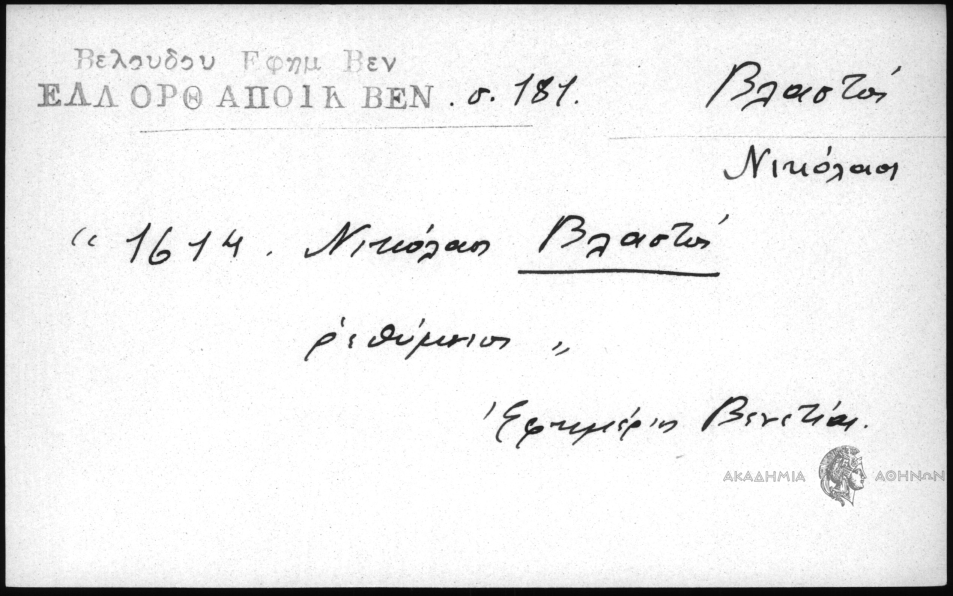 Βελουδου Εφημ Βεν
ΕΛΛ ΟΡΘ ΑΠΟΙΚ ΒΕΝ. σ. 181.
Βλαστός
Νικόλαος
“ 1614. Νικόλαος Βλαστός
ῥεθύμνιος „
Ἐφημέριος Βενετίας.
ΑΚΑΔΗΜΙΑ ΑΘΗΝΩΝ